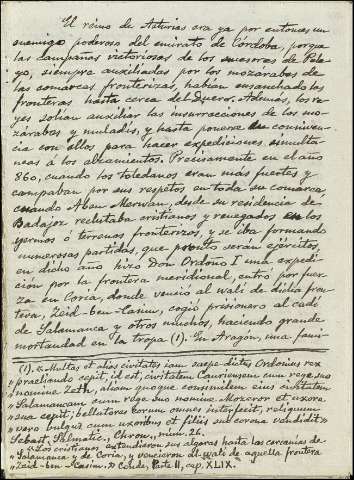 El reino de Asturias era ya por entonces un
enemigo poderoso del emirato de Córdoba, porque
las campañas victoriosas de los sucesores de Pela-
yo, siempre auxiliadas por los mozárabes de
las comarcas fronterizas, habían ensanchado las
fronteras hasta cerca del Duero. Además, los re-
yes solían auxiliar las insurrecciones de los mo-
zárabes y muladis, y hasta ponerse en conniven-
cia con ellos para hacer expediciones simultá-
neas á los alzamientos. Precisamente en el año
860, cuando los toledanos eran más fuertes y
campaban por sus respetos en toda su comarca,
cuando Aben Merwan, desde su residencia de
Badajoz reclutaba cristianos y renegados en los
yermos ó terrenos fronterizos, y se iba formando
numerosas partidas, que pronto serán ejércitos,
en dicho año hizo Don Ordoño I una expedi-
ción por la frontera meridional, entró por fuer-
za en Coria, donde venció al walí de dicha fron-
tera, Zeid-ben-Casim, cogió prisionero al cadí
de Salamanca y otros muchos, haciendo grande
mortandad en la tropa (1). En Aragón, una fami-
(1). «Multas et alias civitates iam saepe dictus Ordonius rex
"praeliando cepit: id est, civitatem Cauriensem cum rege suo
"nomine Zeth, aliam quoque consimilem eius civitatem
"Salamancam cum rege suo nomine Mozeror et uxore
"sua cepit; bellatores eorum omnes interfecit, reliquum
"vero vulgus cum uxoribus et filiis sub corona vendidit"
Sebast. Salmatic., Chron., núm. 26.
"Los cristianos extendieron sus algaras hasta las cercanías de
"Salamanca y de Coria, y vencieron al walí de aquella frontera
"Zeid-ben-Casim." Conde, Parte II, cap. XLIX.